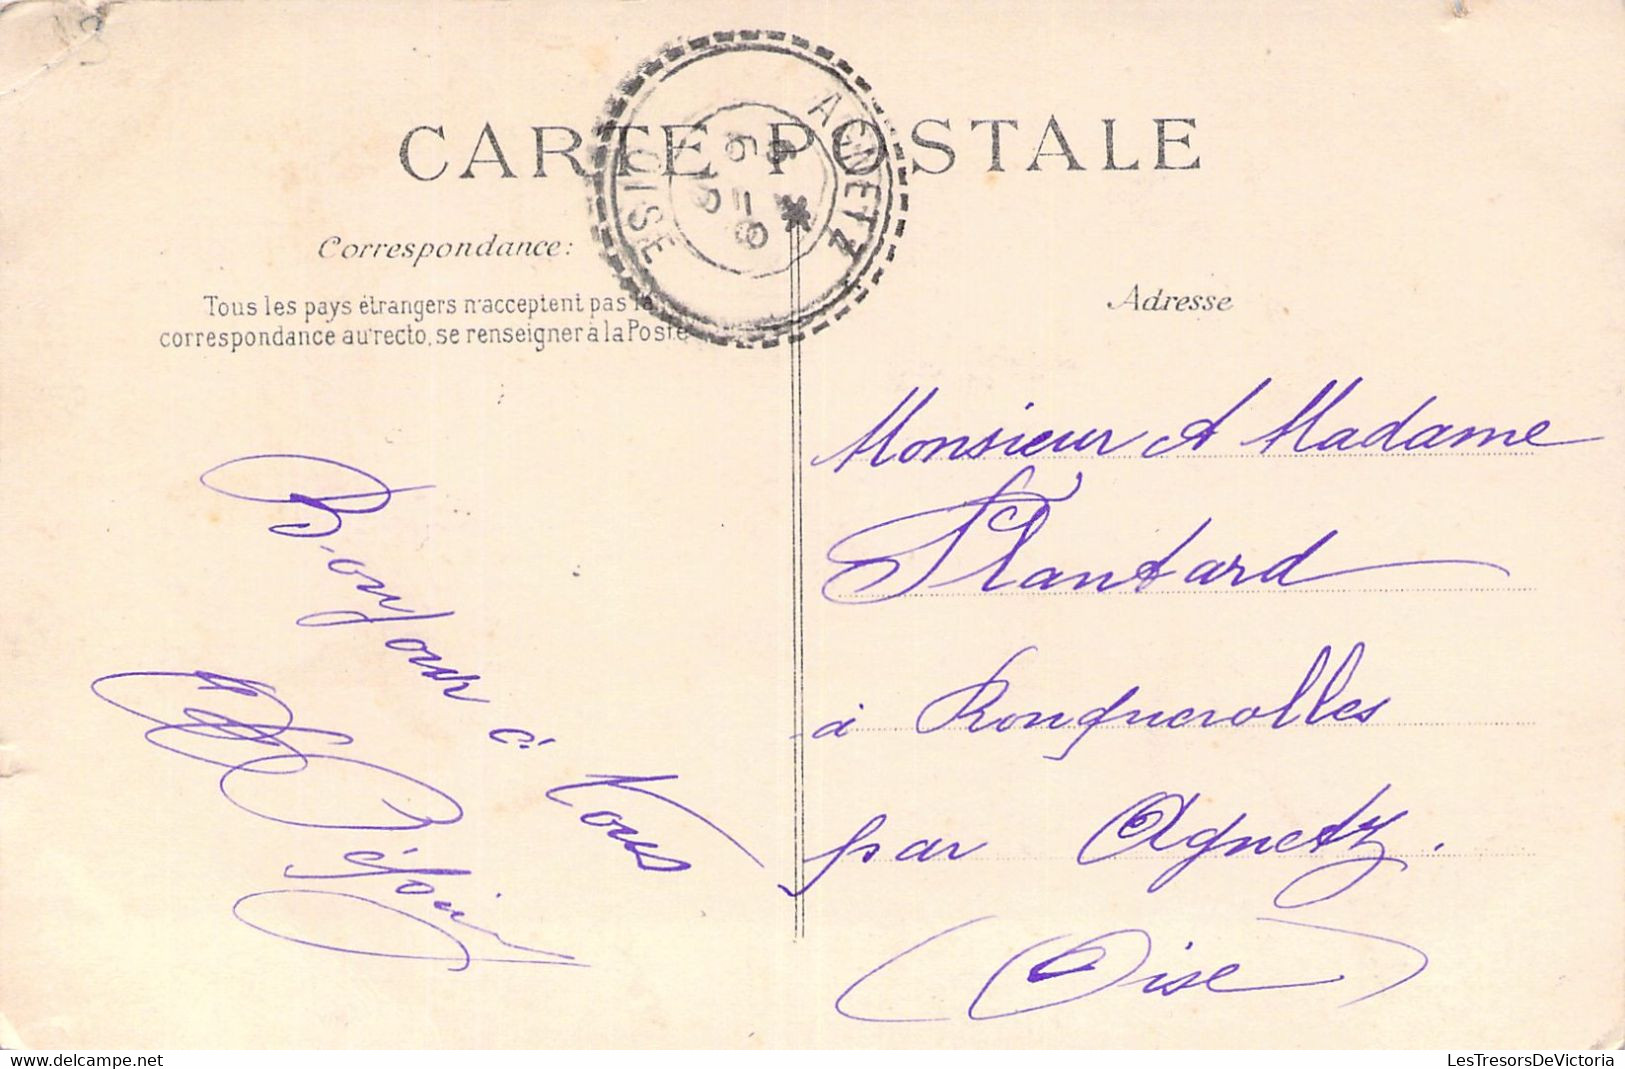 CARTE POSTALE
AGNETZ
OISE
Correspondance:
Tous les pays étrangers n'acceptent pas la
correspondance au recto, se renseigner à la Poste
Adresse
Monsieur et Madame
Plantard
à Ronquerolles
par Agnetz.
(Oise)
Bonjour à Vous
LesTresorsDeVictoria
delcampe.net